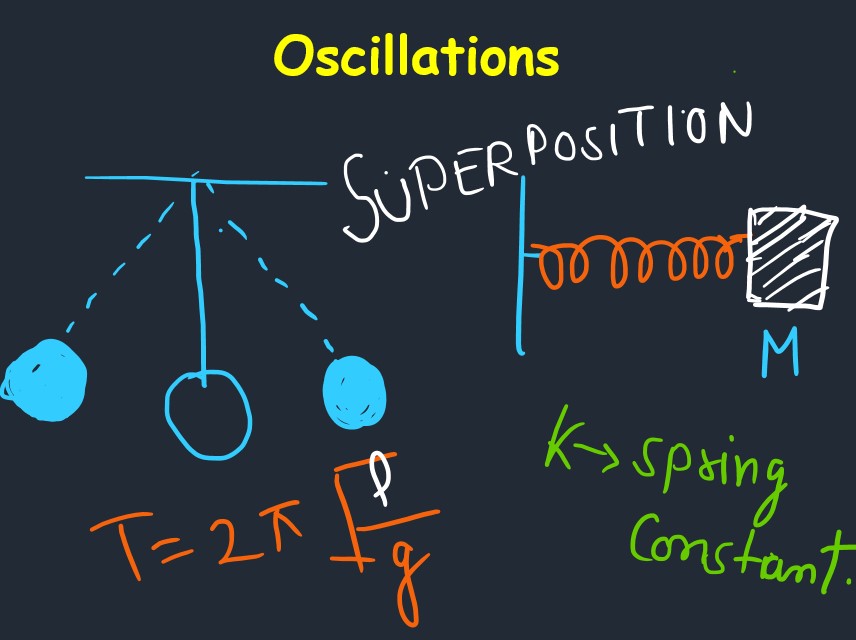 Oscillations
SUPERPOSITION
M
K→ spring
constant.
T = 2π √l/g